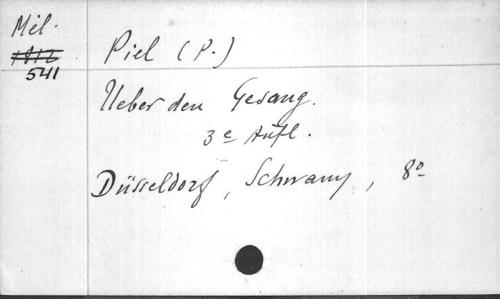 Mél.
1812
541
Piel (P.)
Ueber den Gesang.
3e Aufl.
Düsseldorf, Schwann, 8º